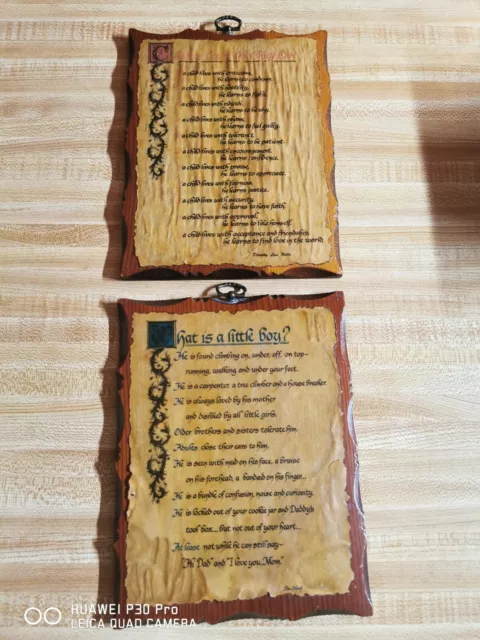 C
a child lives with criticism,
he learns to condemn.
a child lives with hostility,
he learns to fight.
a child lives with ridicule,
he learns to be shy.
a child lives with shame,
he learns to feel guilty.
a child lives with tolerance,
he learns to be patient.
a child lives with encouragement,
he learns confidence.
a child lives with praise,
he learns to appreciate.
a child lives with fairness,
he learns justice.
a child lives with security,
he learns to have faith.
a child lives with approval,
he learns to like himself.
a child lives with acceptance and friendship,
he learns to find love in the world.
Dorothy Law Nolte
What is a little boy?
He is found climbing on, under, off, on top—
running, walking and under your feet.
He is a carpenter a tree climber and a house breaker.
He is always loved by his mother
and disliked by all little girls.
Older brothers and sisters tolerate him.
Adults close their ears to him.
He is seen with mud on his face, a bruise
on his forehead, a bandaid on his finger...
He is a bundle of confusion, noise and curiosity.
He is locked out of your cookie jar and Daddy's
tool box... but not out of your heart...
At least not while he can still say—
"Hi Dad" and "I love you, Mom"
HUAWEI P30 Pro
LEICA QUAD CAMERA